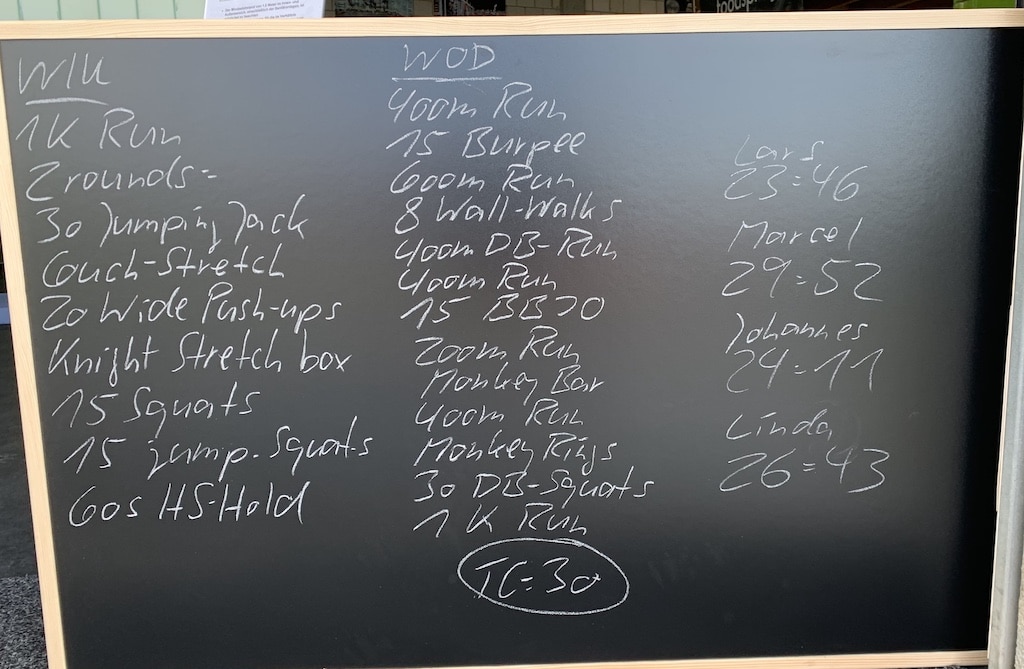 W/U
1K Run
2 rounds:
30 Jumping Jack
Couch-Stretch
20 Wide Push-ups
Knight Stretch box
15 Squats
15 jump. Squats
60s HS-Hold
WOD
400m Run
15 Burpee
600m Run
8 Wall-Walks
400m DB-Run
400m Run
15 BBJO
200m Run
Monkey Bar
400m Run
Monkey Rings
30 DB-Squats
1K Run
TC=30
Lars
23:46
Marcel
29:52
Johannes
24:11
Linda
26:43